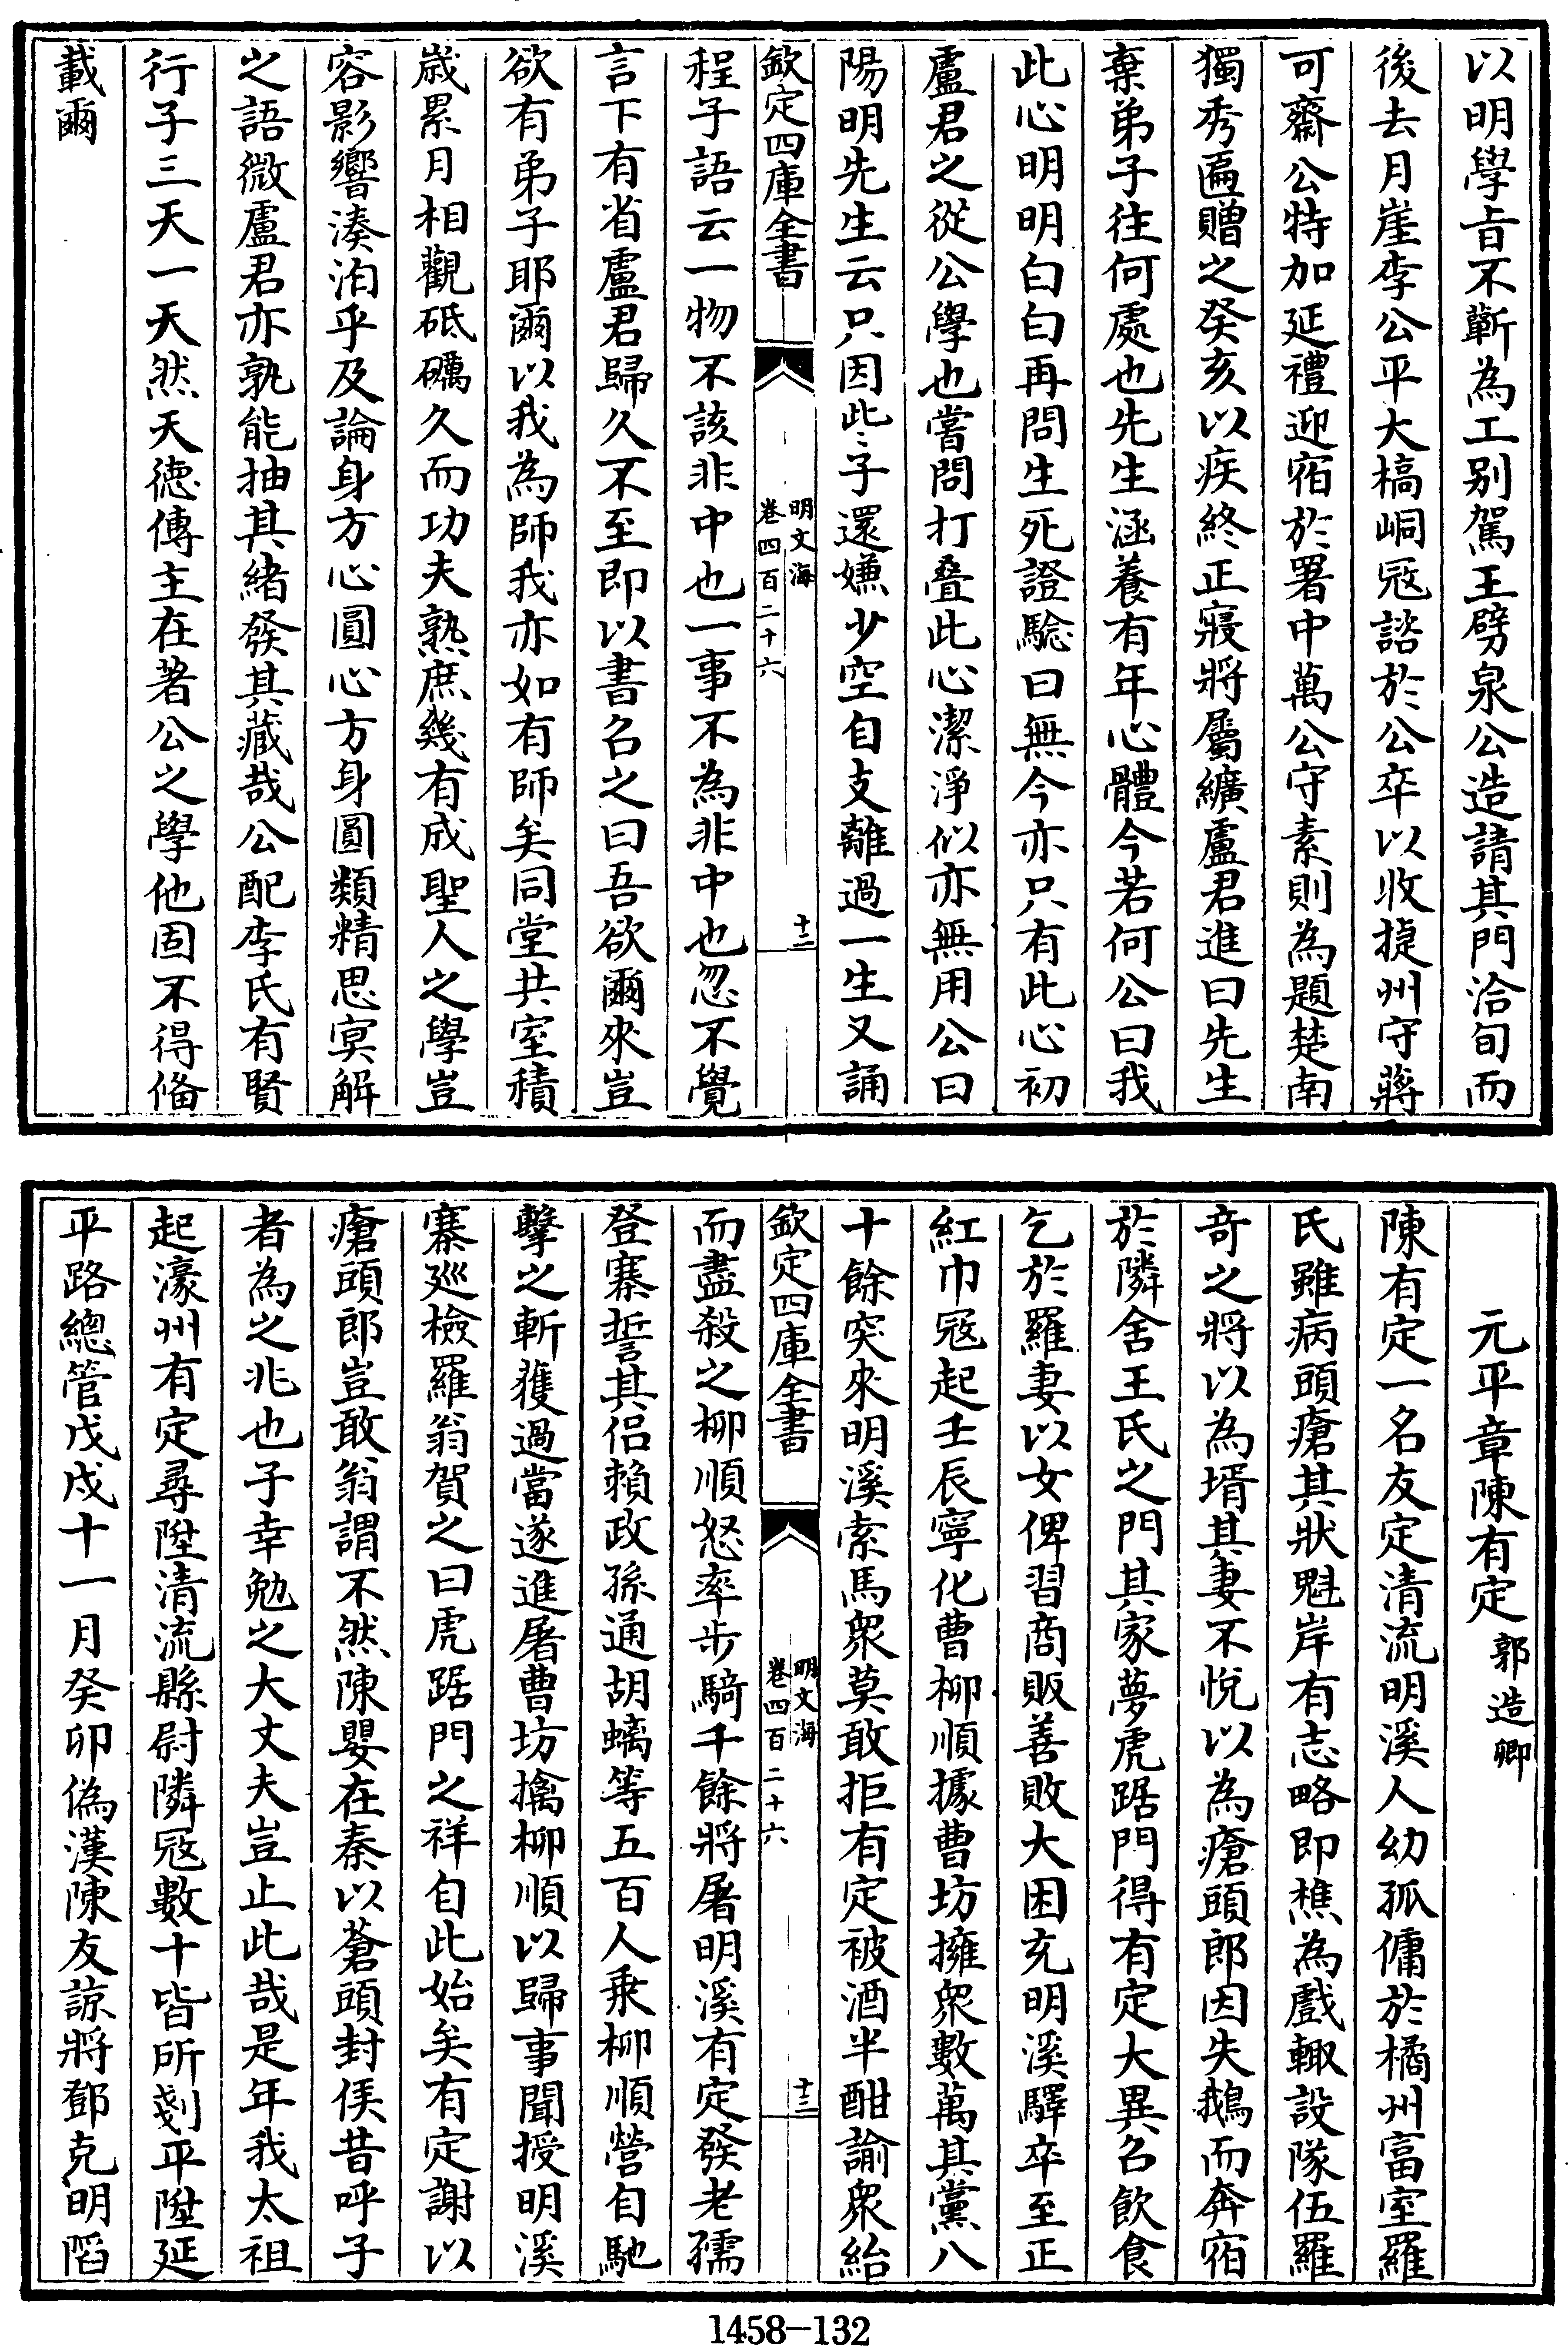 以明學㫖不蘄為工别駕王劈泉公造請其門洽旬而
後去月崖李公平大槁峒冦諮於公卒以收㨗州守蔣
可齋公特加延禮迎宿於署中萬公守素則為題楚南
獨秀匾贈之癸亥以疾終正寢將屬纊盧君進曰先生
棄弟子往何處也先生涵養有年心體今若何公曰我
此心明明白白再問生死證騐曰無今亦只有此心初
盧君之從公學也嘗問打叠此心潔淨似亦無用公曰
陽明先生云只因此々子還嫌少空自支離過一生又誦
欽定四庫全書
明文海
卷四百二十六
十二
程子語云一物不該非中也一事不為非中也忽不覺
言下有省盧君歸久不至即以書名之曰吾欲爾來豈
欲有弟子耶爾以我為師我亦如有師矣同堂共室積
歲累月相觀砥礪久而功夫熟庶幾有成聖人之學豈
容影響湊泊乎及論身方心圓心方身圓類精思㝠解
之語微盧君亦孰能抽其緒發其藏哉公配李氏有賢
行子三天一天然天徳傳主在著公之學他固不得俻
載爾
元平章陳有定 郭造卿
陳有定一名友定清流明溪人幼孤傭於橘州富室羅
氏雖病頭瘡其狀魁岸有志略即樵為戲輙設隊伍羅
竒之將以為壻其妻不悅以為瘡頭郎因失鵝而奔宿
於隣舍王氏之門其家夢虎踞門得有定大異召飲食
乞於羅妻以女俾習商販善敗大困充明溪驛卒至正
紅巾冦起壬辰寧化曹柳順據曹坊擁衆數萬其黨八
十餘突來明溪索馬衆莫敢拒有定被酒半酣諭衆紿
欽定四庫全書
明文海
卷四百二十六
十三
而盡殺之柳順怒率步騎千餘將屠明溪有定發老孺
登寨誓其侣賴政孫通胡蟎等五百人乗柳順營自馳
擊之斬獲過當遂進屠曹坊擒柳順以歸事聞授明溪
寨廵檢羅翁賀之曰虎踞門之祥自此始矣有定謝以
瘡頭郎豈敢翁謂不然陳嬰在秦以蒼頭封侯昔呼子
者為之兆也子幸勉之大丈夫豈止此哉是年我太祖
起濠州有定尋陞清流縣尉隣冦數十皆所剗平陞延
平路總管戊戌十一月癸卯偽漢陳友諒將鄧克明陷
1458—132